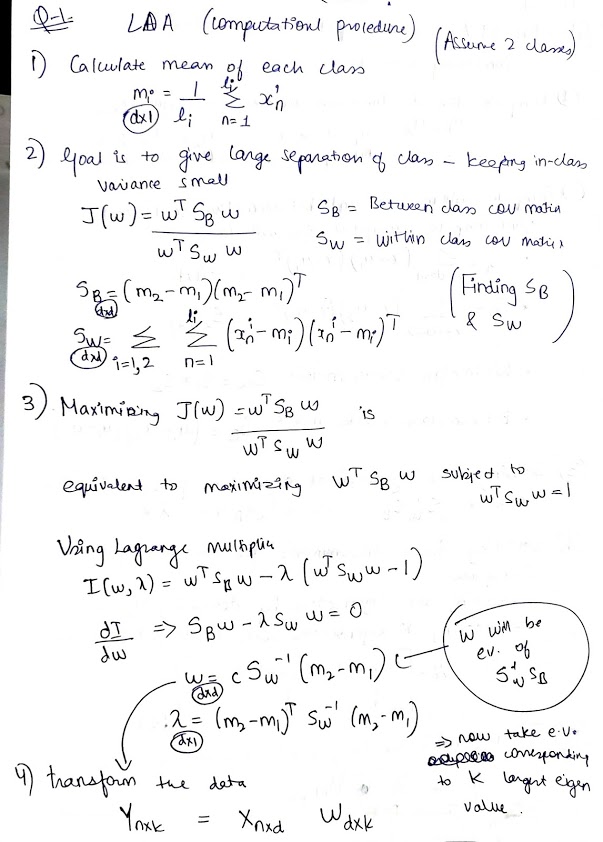 Q-1. LDA (computational procedure) (Assume 2 classes)
1) Calculate mean of each class
m_i = 1/l_i Σ_{n=1}^{l_i} x_n^i
(dx1)
2) Goal is to give large separation of class – keeping in-class
variance small
J(w) = w^T S_B w / w^T S_W w
S_B = Between class cov matrix
S_W = within class cov matrix
S_B = (m_2 – m_1)(m_2 – m_1)^T
(dxd)
(Finding S_B & S_W)
S_W = Σ_{i=1,2} Σ_{n=1}^{l_i} (x_n^i – m_i)(x_n^i – m_i)^T
(dxd)
3) Maximizing J(w) = w^T S_B w / w^T S_W w is
equivalent to maximizing w^T S_B w subject to
w^T S_W w = 1
Using Lagrange multiplier
I(w, λ) = w^T S_B w – λ (w^T S_W w – 1)
dI/dw => S_B w – λ S_W w = 0
w = c S_W^{-1} (m_2 – m_1)
(dxd)
w will be
ev. of
S_W^{-1} S_B
λ = (m_2 – m_1)^T S_W^{-1} (m_2 – m_1)
(dx1)
=> now take e.v.
corresponding
to K largest eigen
value.
4) transform the data
Y_{nxk} = X_{nxd} W_{dxk}